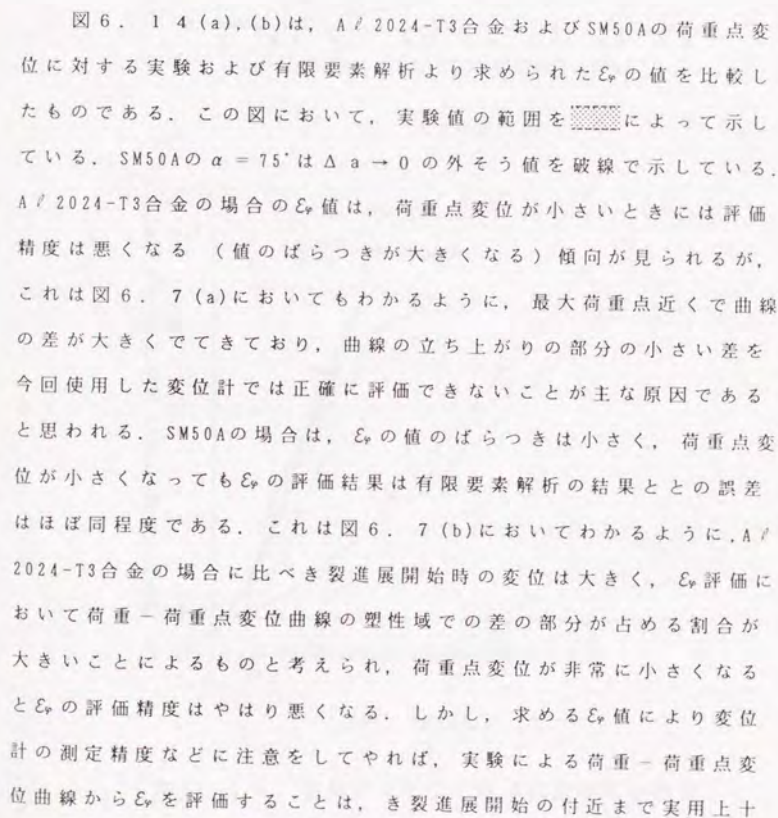 図6．14(a),(b)は，Aℓ2024-T3合金およびSM50Aの荷重点変
位に対する実験および有限要素解析より求められたℰφの値を比較し
たものである．この図において，実験値の範囲を によって示し
ている．SM50Aのα＝75°はΔa→0の外そう値を破線で示している．
Aℓ2024-T3合金の場合のℰφ値は，荷重点変位が小さいときには評価
精度は悪くなる（値のばらつきが大きくなる）傾向が見られるが，
これは図6．7(a)においてもわかるように，最大荷重点近くで曲線
の差が大きくでてきており，曲線の立ち上がりの部分の小さい差を
今回使用した変位計では正確に評価できないことが主な原因である
と思われる．SM50Aの場合は，ℰφの値のばらつきは小さく，荷重点変
位が小さくなってもℰφの評価結果は有限要素解析の結果ととの誤差
はほぼ同程度である．これは図6．7(b)においてわかるように,Aℓ
2024-T3合金の場合に比べき裂進展開始時の変位は大きく，ℰφ評価に
おいて荷重－荷重点変位曲線の塑性域での差の部分が占める割合が
大きいことによるものと考えられ，荷重点変位が非常に小さくなる
とℰφの評価精度はやはり悪くなる．しかし，求めるℰφ値により変位
計の測定精度などに注意をしてやれば，実験による荷重－荷重点変
位曲線からℰφを評価することは，き裂進展開始の付近まで実用上十